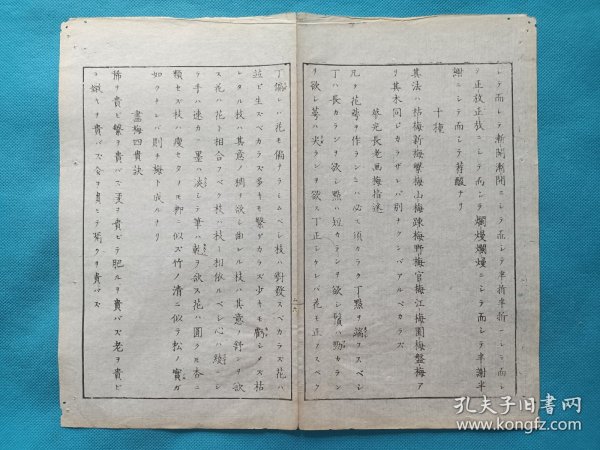 シテ而レテ漸開漸開ニシテ而シテ半折半折ニレテ而シ
テ正放正放ニシテ而シテ爛熳爛熳ニシテ而シテ半謝半
謝ニシテ而シテ薺酸ナリ
十種
其法ハ枯梅新梅繁梅山梅疎梅野梅官梅江梅園梅盤梅ア
リ其木同ジカラザレバ別ヲクンバアルベカラズ
華光長老画梅指迷
凡ヲ花萼ヲ作ランニハ必ズ須カラク丁點ヲ端フスベシ
丁ハ長カランヲ欲シ點ハ短カランヲ欲シ鬚ハ勁カラン
ヲ欲シ萼ハ尖ランヲ欲ス丁正シケレバ花モ正フスベク
丁偏レハ花モ偏ナラシムベシ枝ハ對發スベカラズ花ハ
並ビ生スベカラズ多キモ繁ゲカラズ少キモ虧シメズ枯
レタル枝ハ其意ノ稠ヲ欲シ曲レル枝ハ其意ノ舒シヲ欲
ス花ハ花ト相合フベク枝ハ枝ト相依ルベシ心ハ緩ニシ
テ手ハ速カニ墨ハ淡シテ筆ハ乾ヲ欲ス花ハ圓クルモ杏ニ
類セズ枝ハ瘦セタルモ柳ニ似ズ竹ノ清ニ似テ松ノ實ガ
如クナレバ則チ梅ト成ルナリ
畫梅四貴訣
稀ヲ貴ビ繁ヲ貴バズ瘦ヲ貴ビテ肥ルヲ貴バズ老ヲ貴ビ
テ嫩キヲ貴バズ含ヲ貴ビテ開クヲ貴バズ
孔夫子旧书网
www.kongfz.com